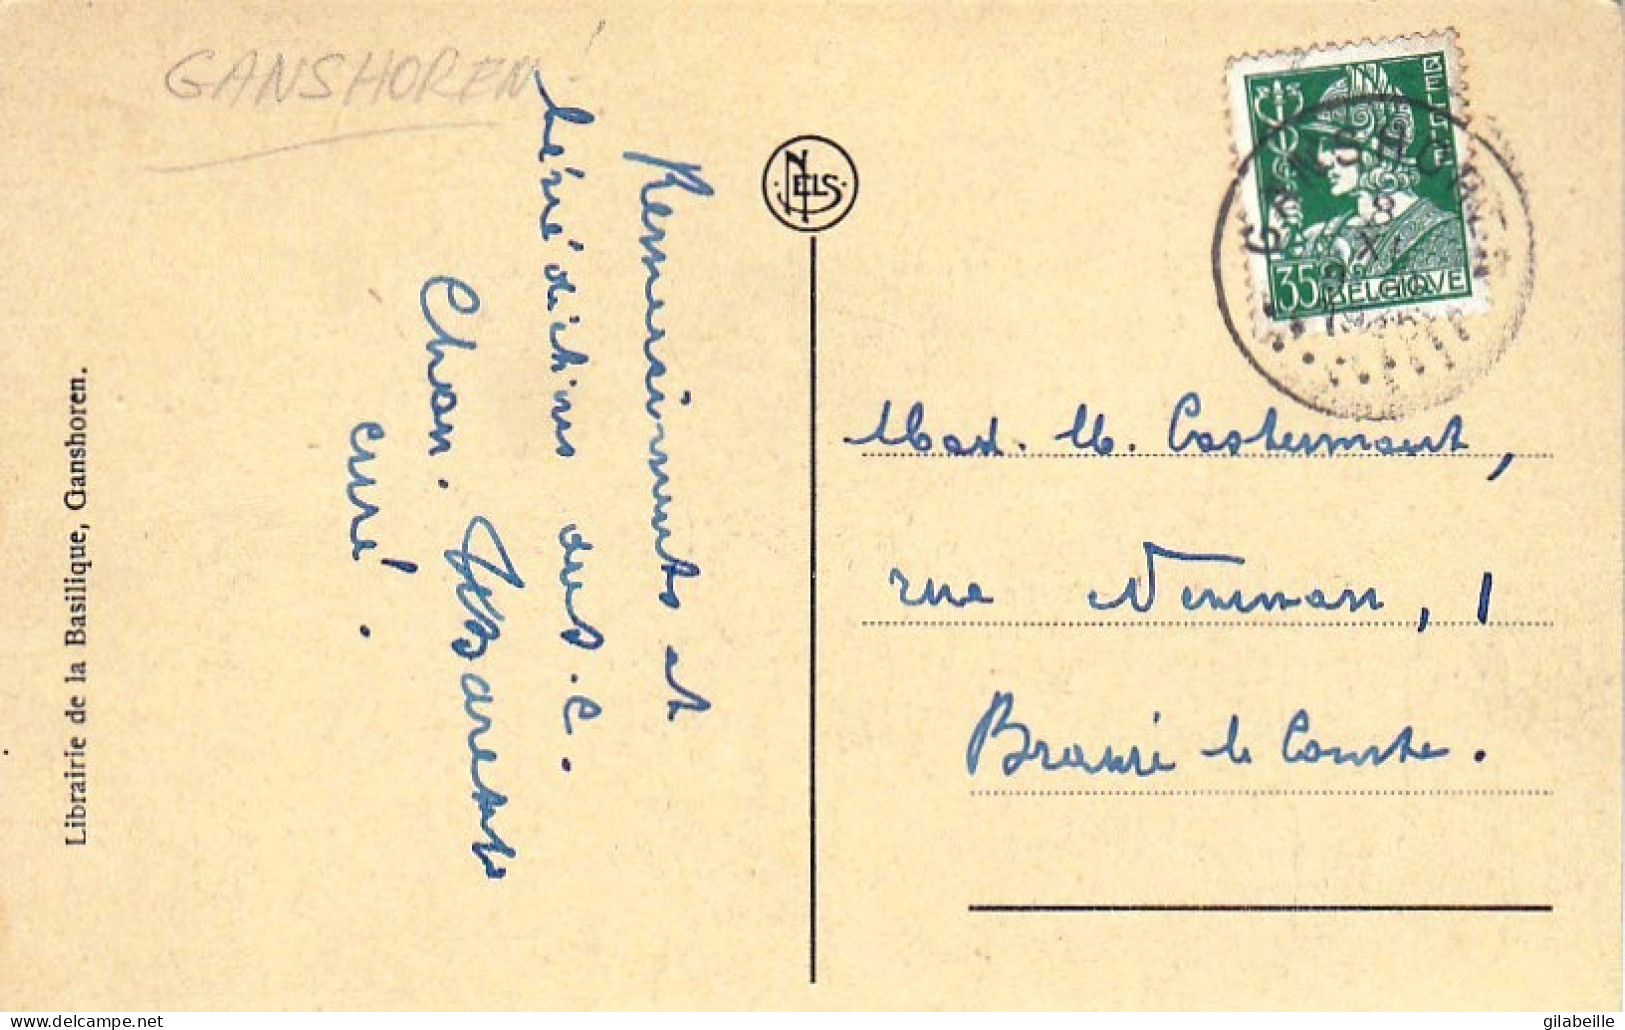 GANSHOREN
Remerciements et
bénédictions
Chan.
curé.
Librairie de la Basilique, Ganshoren.
NELS
BELGIE
35 BELGIQUE
GANSHOREN
8
XI
Mad. M. Castermant,
rue Neuman, 1
Braine le Comte.
gilabeille
www.delcampe.net